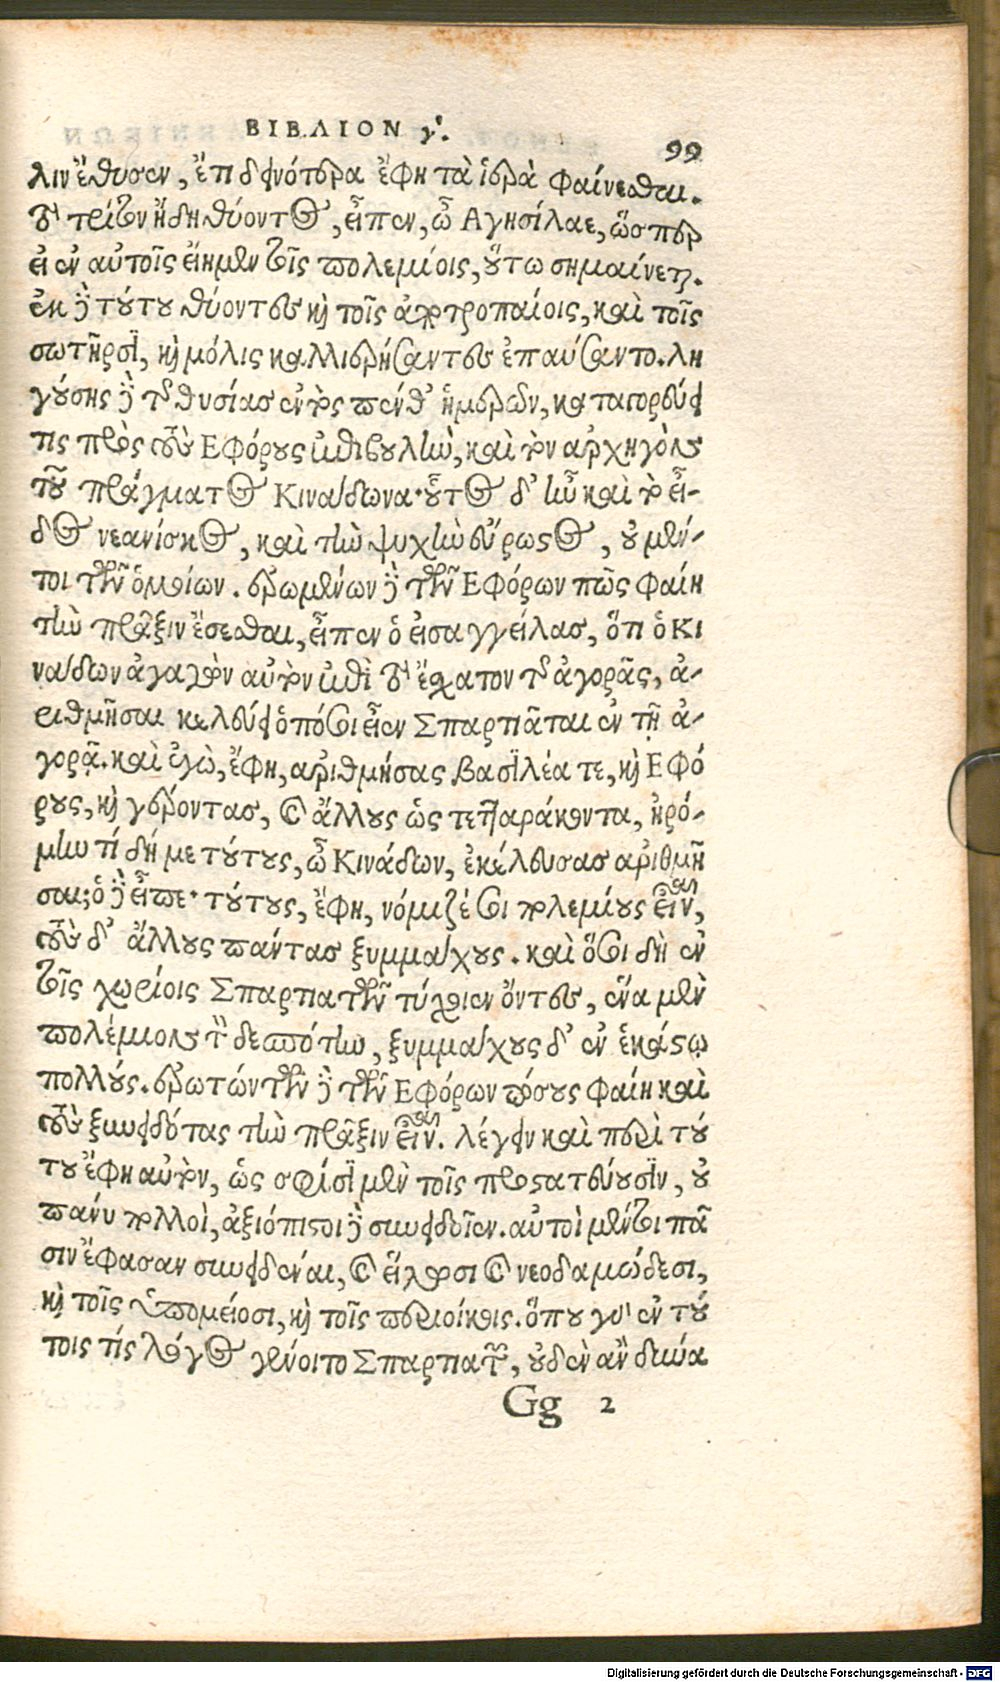 ΒΙΒΛΙΟΝ γ'.
99
λιν ἔθυσεν, ἔτι δεινότερα ἔφη τὰ ἱερὰ φαίνεσθαι.
τὸ τρίτον ἤδη θύοντος, εἶπεν, ὦ Αγησίλαε, ὥσπερ
εἰ ἐν αὐτοῖς εἴημεν τοῖς πολεμίοις, οὕτω σημαίνεται.
ἐκ δὲ τούτου θύοντες καὶ τοῖς ἀποτροπαίοις, καὶ τοῖς
σωτῆρσι, καὶ μόλις καλλιερήσαντες ἐπαύσαντο. λη
γούσης δὲ τῆς θυσίας ἐντὸς πένθ' ἡμερῶν, καταγορεύει
τις πρὸς τοὺς Εφόρους ἐπιβουλὴν, καὶ τὸν ἀρχηγὸν
τοῦ πράγματος Κινάδωνα· οὗτος δ' ἦν καὶ τὸ εἶ-
δος νεανίσκος, καὶ τὴν ψυχὴν εὔρωστος, οὐ μέν-
τοι τῶν ὁμοίων. ἐρωμένων δὲ τῶν Εφόρων πῶς φαίη
τὴν πρᾶξιν ἔσεσθαι, εἶπεν ὁ εἰσαγγείλας, ὅτι ὁ Κι
νάδων ἀγαγὼν αὐτὸν ἐπὶ τὸ ἔσχατον τῆς ἀγορᾶς, ἀ-
ριθμῆσαι κελεύει ὁπόσοι εἶεν Σπαρτιᾶται ἐν τῇ ἀ-
γορᾷ. καὶ ἐγὼ, ἔφη, ἀριθμήσας βασιλέα τε, καὶ Εφό
ρους, καὶ γέροντας, καὶ ἄλλους ὡς τετταράκοντα, ἠρό-
μην τί δή με τούτους, ὦ Κινάδων, ἐκέλευσας ἀριθμῆ
σαι; ὁ δὲ εἶπε· τούτους, ἔφη, νόμιζέ σοι πολεμίους εἶναι,
τοὺς δ' ἄλλους πάντας ξυμμάχους. καὶ ὅσοι δὴ ἐν
τοῖς χωρίοις Σπαρτιατῶν τύχοιεν ὄντες, ἕνα μὲν
πολέμιον τὸν δεσπότην, ξυμμάχους δ' ἐν ἑκάστῳ
πολλούς. ἐρωτώντων δὲ τῶν Εφόρων πόσους φαίη καὶ
τοὺς ξυνειδότας τὴν πρᾶξιν εἶναι. λέγειν καὶ περὶ τού
του ἔφη αὐτὸν, ὡς σφίσι μὲν τοῖς προστατεύουσιν, οὐ
πάνυ πολλοὶ, ἀξιόπιστοι δὲ συνειδεῖεν. αὐτοὶ μέντοι πᾶ
σιν ἔφασαν συνειδέναι, καὶ εἵλωσι καὶ νεοδαμώδεσι,
καὶ τοῖς ὑπομείοσι, καὶ τοῖς περιοίκοις. ὅπου γὰρ ἐν τού
τοις τίς λόγος γένοιτο Σπαρτιατῶν, οὐδένα ἂν δύνα
Gg 2
Digitalisierung gefördert durch die Deutsche Forschungsgemeinschaft - DFG